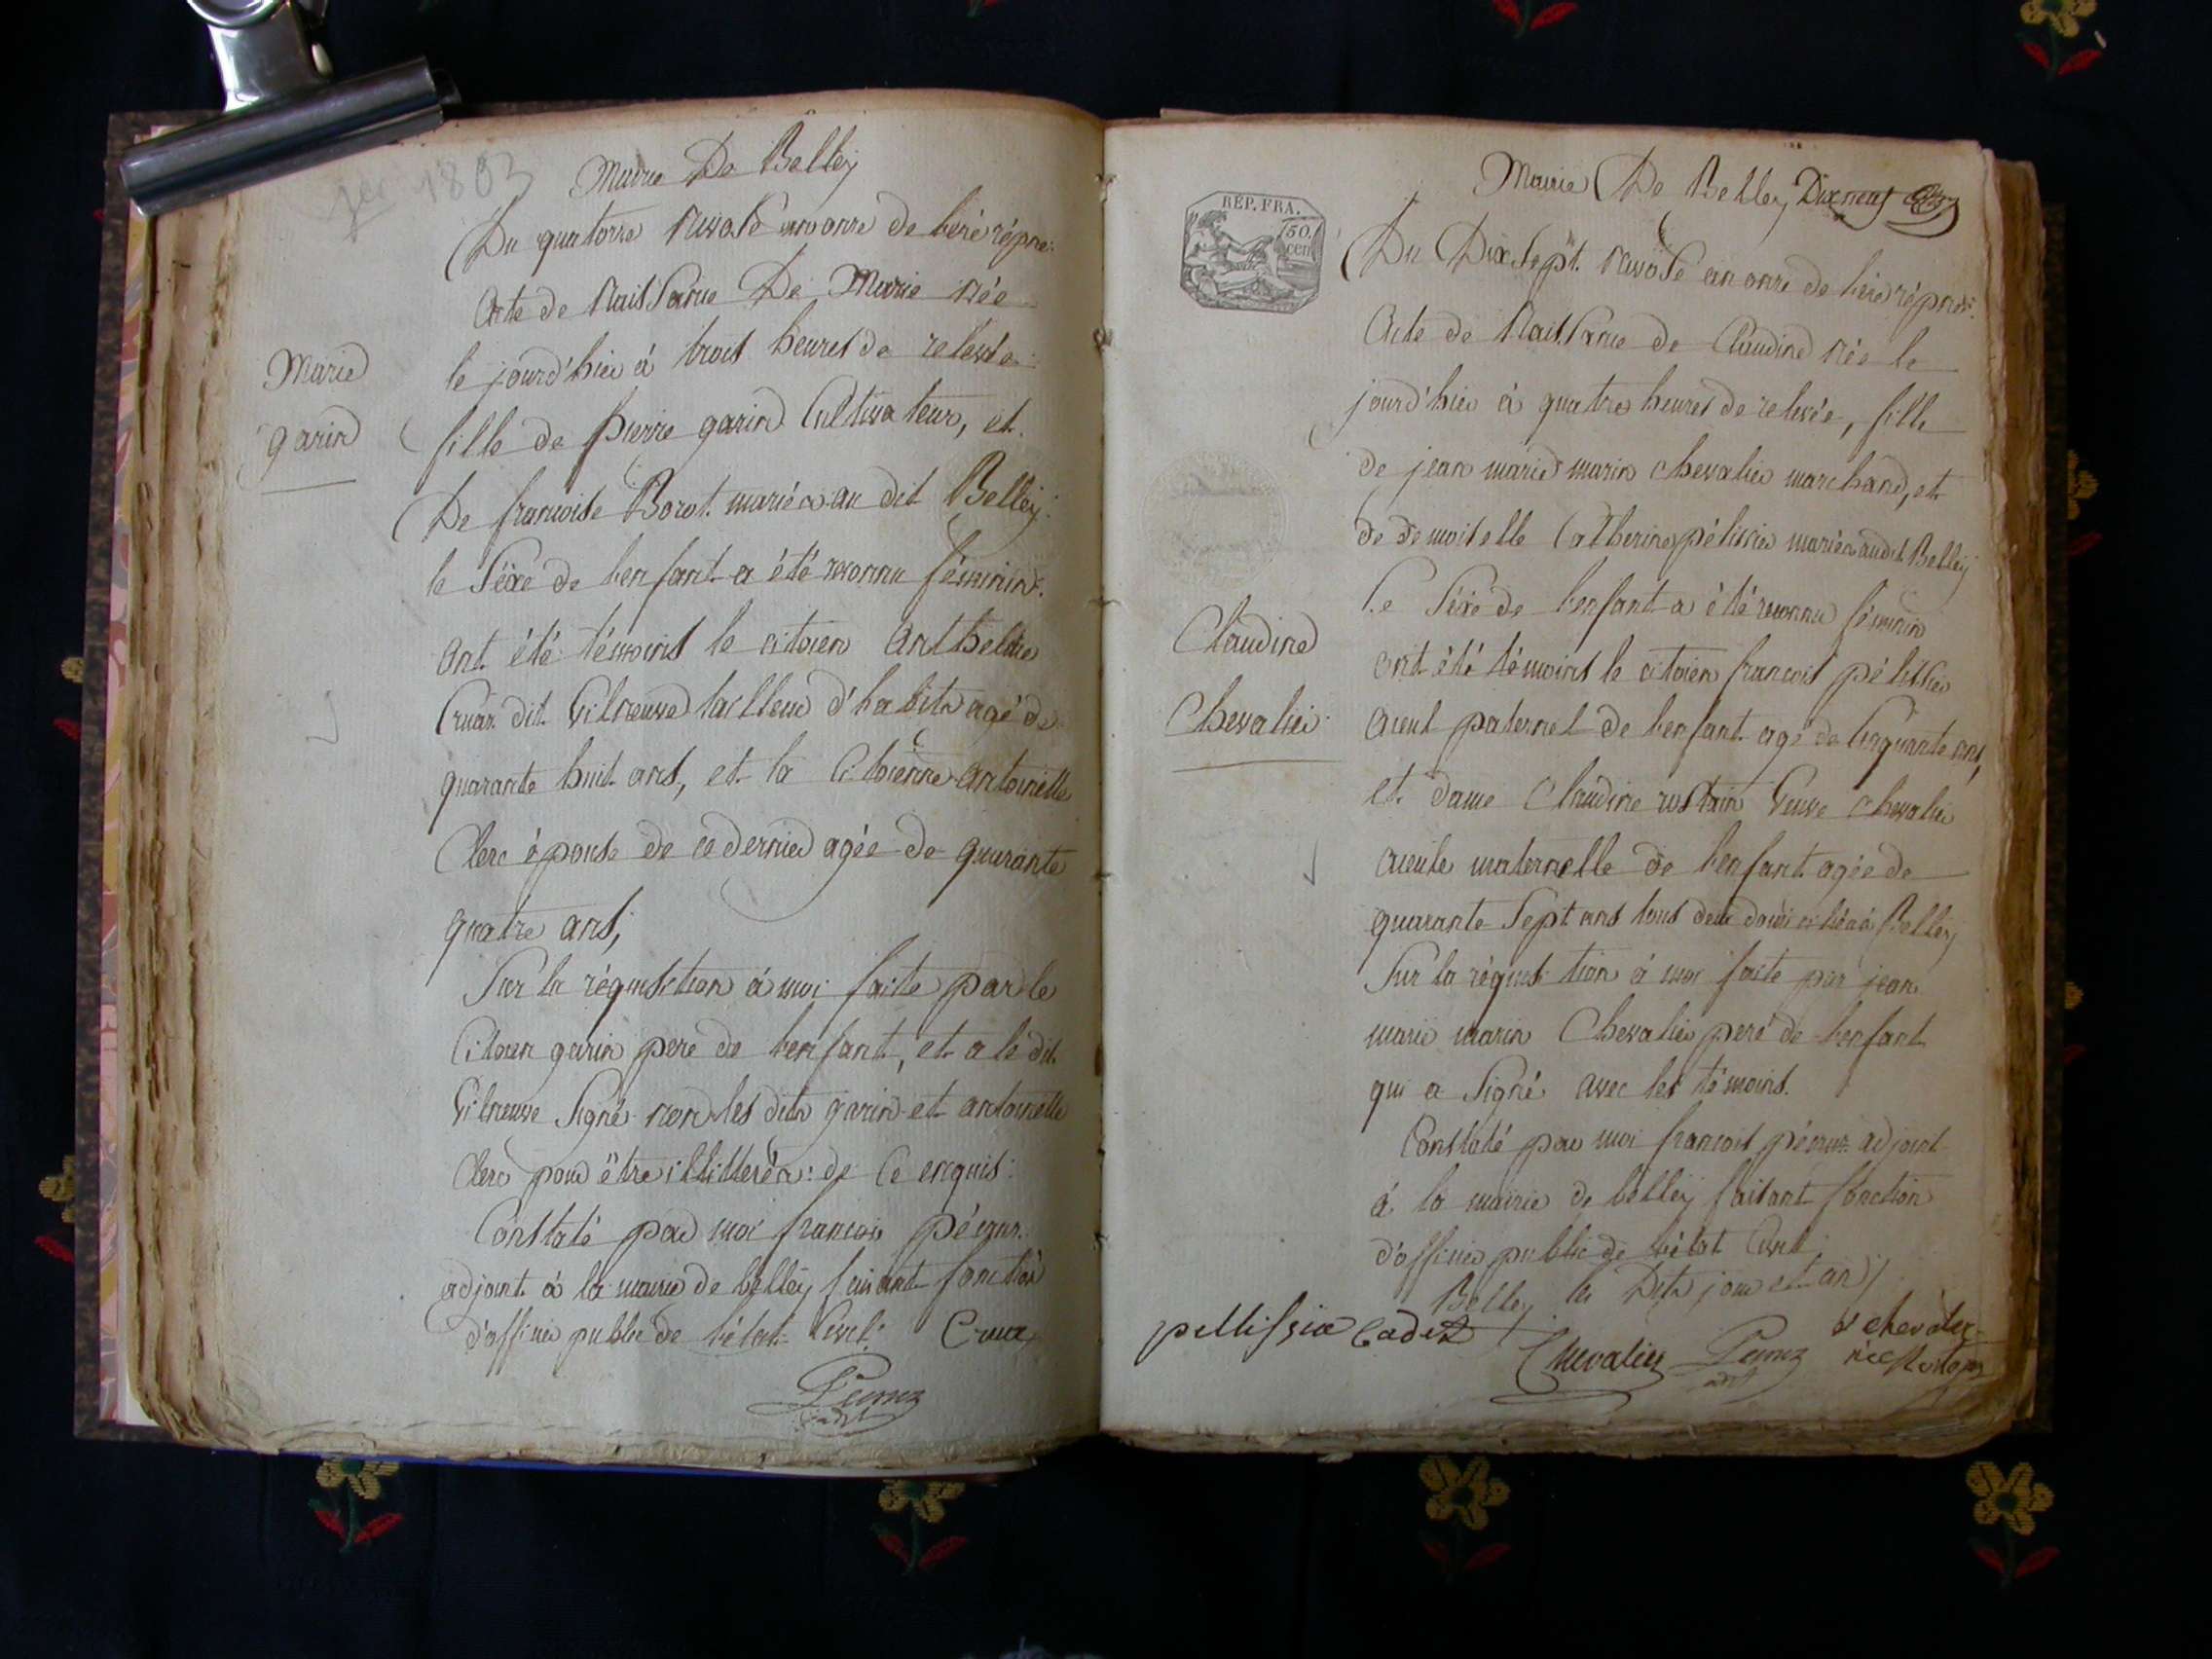 jer 1803
Mairie De Belley
Du quatorze Nivose an onze de l'ere répne:
Acte de Naissance De Marie née
le jourd'hier à trois heures de relevée
fille de pierre garin Cultivateur, et
De francoise Borot mariés au dit Belley:
le Séxe de l'enfant a été reconnu féminin:
Ont été témoins le citoien Anthelme
Cruaz dit Vilneuve tailleur d'habits agé de
quarante huit ans, et la Citoienne Antoinette
Clerc épouse de ce dernier agée de quarante
quatre ans,
Sur la réquisition à moi faite par le
Citoien garin pere de l'enfant, et a le dit
Vilneuve Signé non les dits garin et antoinette
Clerc pour être illitterés: de ce enquis:
Constaté par moi francois pécuz
adjoint à la mairie de belley faisant fonction
d'officier public de l'état Civil: Cruaz
adjt
Marie
garin
Mairie De Belley Dix neuf
REP. FRA.
50.
cen
Du Dix Sept Nivose an onze de l'ere répne:
Acte de Naissance de Claudine née le
jourd'hier à quatre heures de relevée, fille
de jean marie marin chevalier marchand, et
de demoiselle Catherine pélissier mariés audit Belley
Le Séxe de l'enfant a été reconnu féminin
ont été témoins le citoien francois pélissier
aieul paternel de l'enfant agé de Cinquante ans,
et dame Claudine rostain Veuve chevalier
aieule maternelle de l'enfant agée de
quarante Sept ans tous deux domiciliés à Belley
Sur la réquisition à moi faite par jean
marie marin Chevalier pere de l'enfant
qui a Signé avec les témoins.
Constaté par moi francois adjoint
à la mairie de belley faisant fonction
d'officier public de l'état Civil
Belley les Dits jour et an
Claudine
Chevalier
pellissier Cadet
Chevalier
adjt
ve chevalier
née Rostain